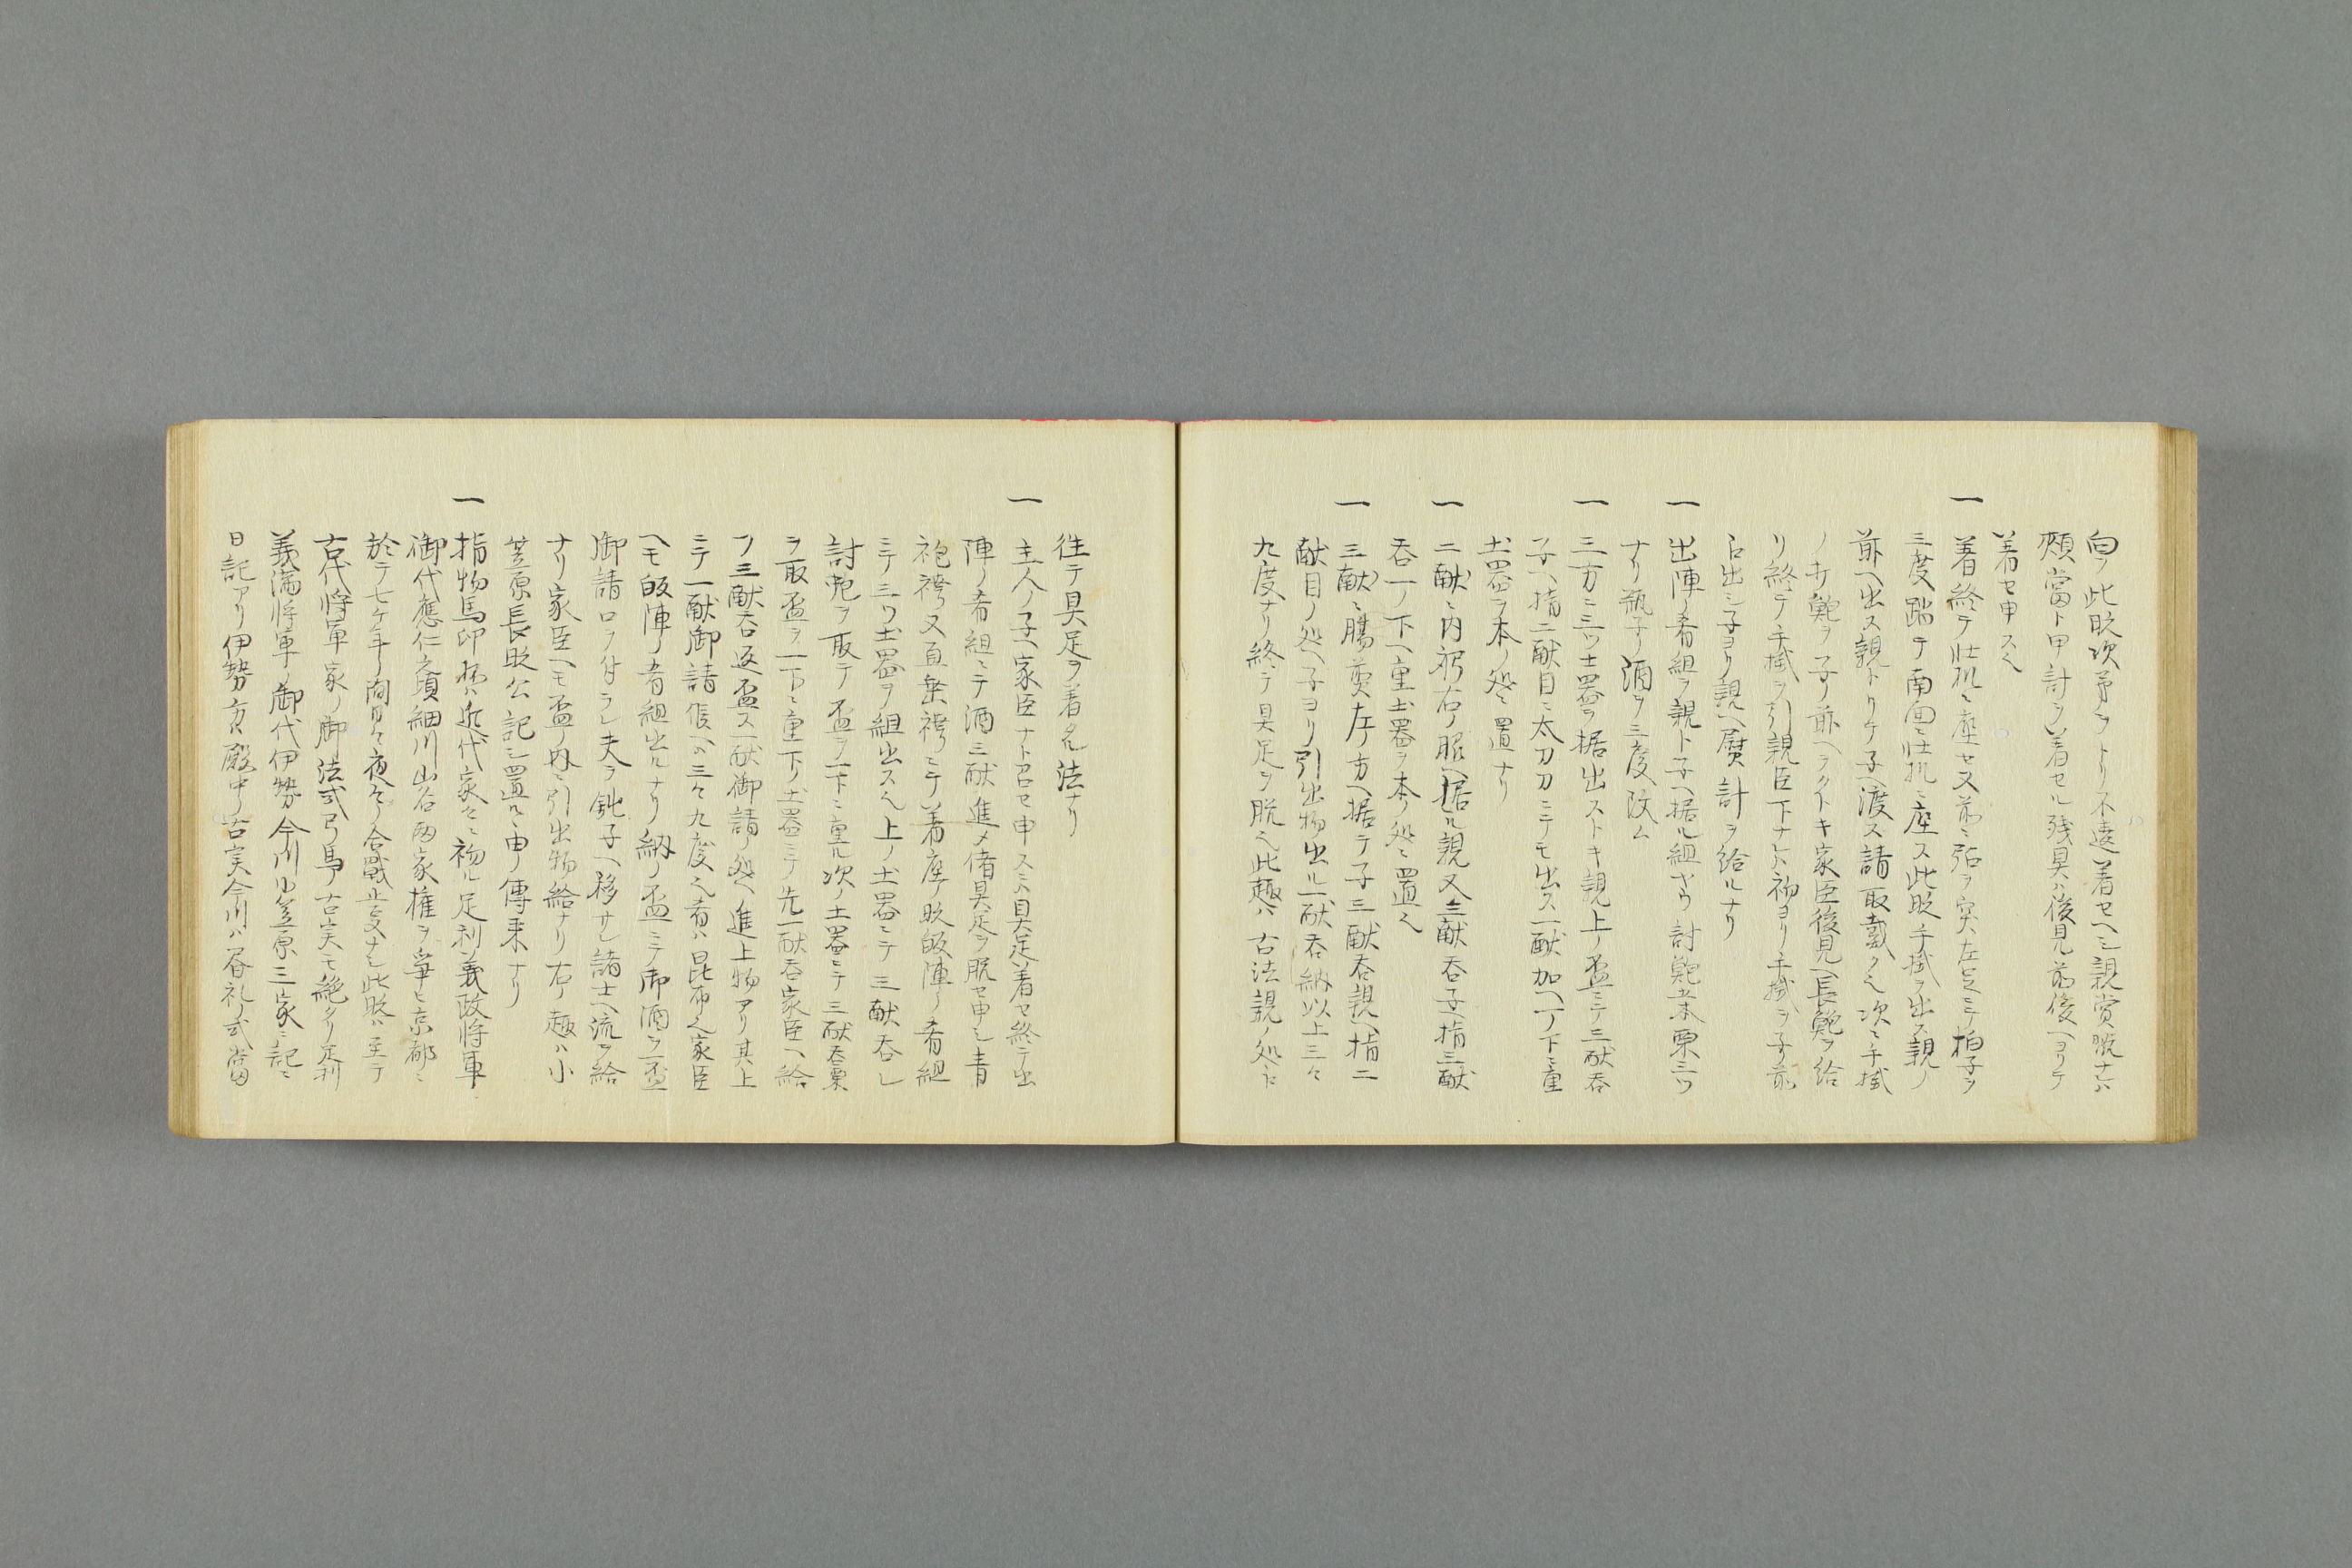 向フ此時次第ヲトリ不違着セヘシ親賞脱ナハ
頬當ト甲計ヲ着セル残具ハ後見前後ヘヨリテ
着セ申ス也
一 着終テ牀机ニ座セ又前ニ弭ヲ突ハ左足ニテ拍子ヲ
三度踏テ南面ニ牀机ニ座ス此時手掛ヲ出ス親ノ
前ヘ出ス親トリテ子ヘ渡ス請取戴ク也次ニ手掛
ノ打鮑ヲ子ノ前ヘヲクトキ家臣後見ヘ長鮑ヲ給
リ終テ手掛ヲ引親臣下ナレハ初ヨリ手掛ヲ子ノ前
ニ出シ子ヨリ親ヘ熨計ヲ給ルナリ
一 出陣ノ肴組ヲ親ト子ヘ据ル組ヤウ討鮑五本栗三ツ
ナリ瓶子ノ酒ヲ三度改ム
一 三方ニ三ツ土器ヲ据出ストキ親上ノ盃ニテ三献呑
子ヘ指二献目ニ太刀刀ニテモ出ス一献加ヘ一ノ下ニ重
土器ヲ本ノ処ニ置ナリ
一 二献ニ内祝右ノ脇ヘ据ル親又三献呑子ヘ指三献
呑一ノ下ヘ重土器ヲ本ノ処ニ置也
一 三献ニ腸煎左ノ方ヘ据テ子三献呑親ヘ指二
献目ノ処ヘ子ヨリ引出物出ル一献呑納以上三々
九度ナリ終テ具足ヲ脱也此趣ハ古法親ノ処ニ
往テ具足ヲ着タル法ナリ
一 主人ノ子ヘ家臣ナト召セ申スハ具足着セ終テ出
陣ノ肴組ニテ酒三献進メ偖具足ヲ脱セ申シ青
袍袴又直垂袴ニテ着座ノ時皈陣ノ肴組
ニテ三ツ土器ヲ組出ス也上ノ土器ニテ三献呑シ
討鮑ヲ取テ盃ヲ一下ニ重ル次ノ土器ニテ三献呑栗
ヲ取盃ヲ一下ニ重下リ土器ニテ先一献呑家臣ヘ給
フ三献呑返盃ス一献御請ノ処ヘ進上物アリ其上
ニテ一献御請候ヘハ三々九度也肴ハ昆布也家臣
ヘモ皈陣ノ肴組出ルナリ納ノ盃ニテ御酒ヲ一盃
御請口ヲ付ラレ夫ヲ銚子ヘ移サレ諸士ヘ流ヲ給
ナリ家臣ヘモ盃ノ内ニ引出物給ナリ右ノ趣ハ小
笠原長時公記シ置ルヽ由ノ傳来ナリ
一 指物馬印抔ハ近代家々ニ初ル足利義政将軍
御代應仁之頃細川山名両家権ヲ爭ヒ京都ニ
於テ七ケ年ノ間日々夜々ノ合戰止支ナシ此時ハ至テ
古代将軍家ノ御法式弓馬ノ古実モ絶タリ足利
義満将軍ノ御代伊勢今川小笠原三家ニ記ニ
日記アリ伊勢方ハ殿中ノ古実今川ハ書礼ノ式當